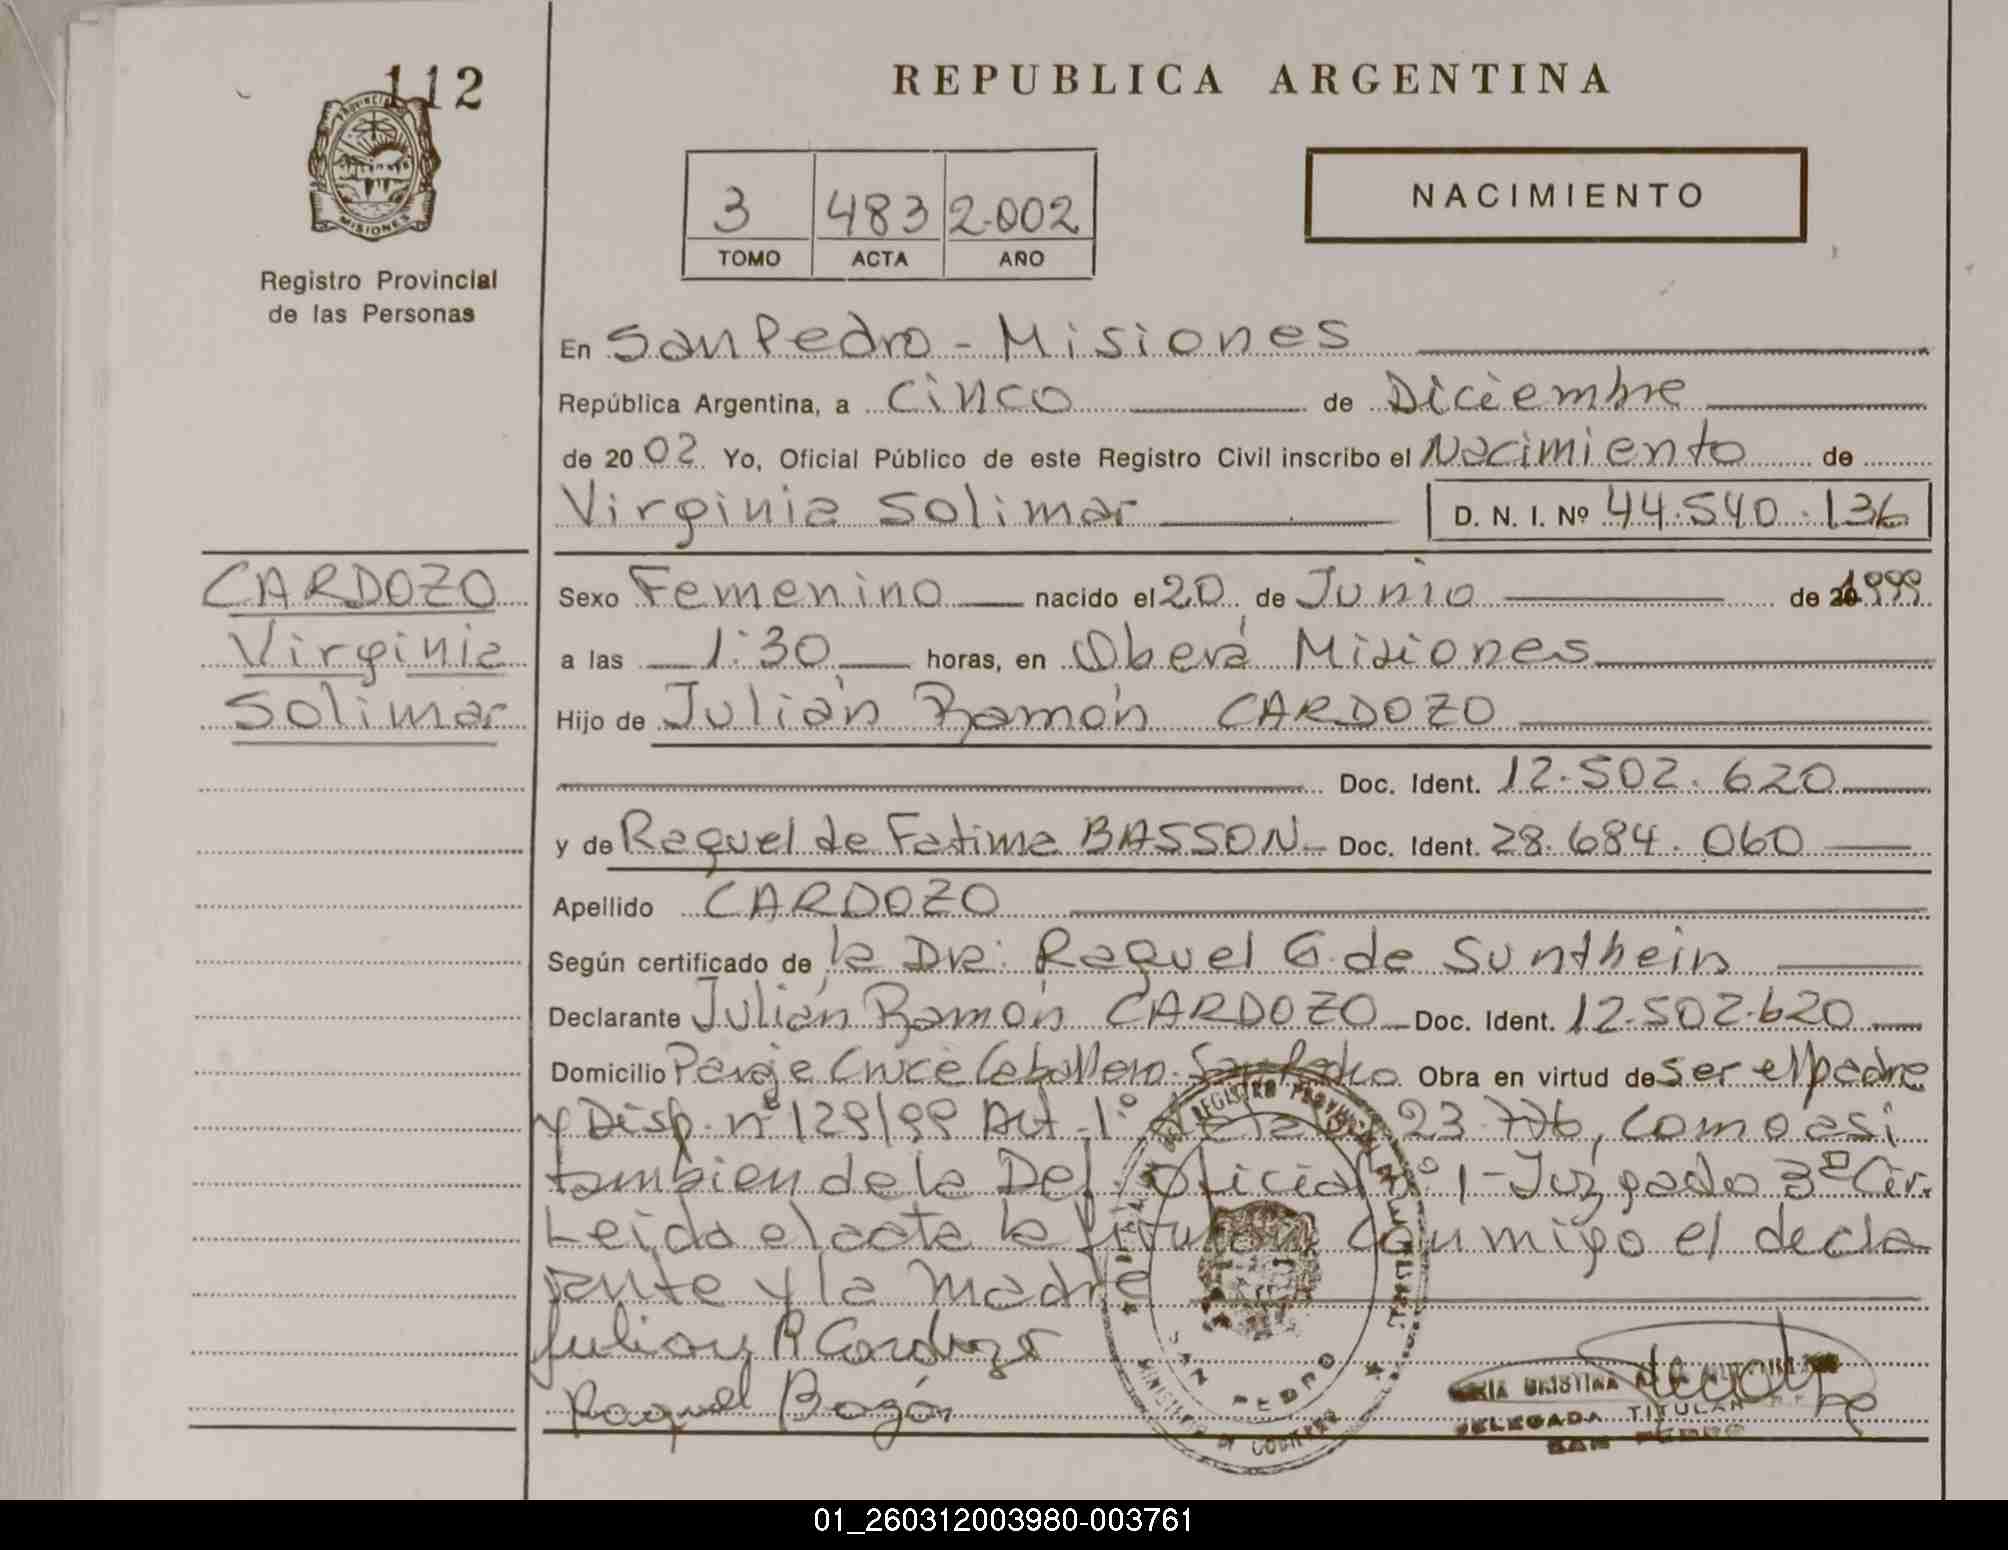 112
REPUBLICA ARGENTINA
PROVINCIA
MISIONES
Registro Provincial
de las Personas
3 483 2.002
TOMO ACTA AÑO
NACIMIENTO
En San Pedro - Misiones
República Argentina, a Cinco de Diciembre
de 2002 Yo, Oficial Público de este Registro Civil inscribo el Nacimiento de
Virginia Solimar D. N. I. Nº 44.540.136
CARDOZO
Virginia
Solimar
Sexo Femenino nacido el 20 de Junio de 1999
a las 1:30 horas, en Oberá Misiones
Hijo de Julián Ramón CARDOZO
Doc. Ident. 12.502.620
y de Raquel de Fatima BASSON Doc. Ident. 28.684.060
Apellido CARDOZO
Según certificado de la Dra: Raquel G. de Sunthein
Declarante Julián Ramón CARDOZO Doc. Ident. 12.502.620
Domicilio Paraje Cruce Caballero - San Pedro Obra en virtud de ser el padre
y Disp. nº 129/99 Art. 1º 23.776, como asi
tambien de la Def. Oficial nº 1 - Juzgado 3ª Cir.
Leida el acta la conmigo el decla
rante y la madre
Julian R Cardozo
Raquel Bazón
REGISTRO PROVINCIAL
SAN PEDRO
MINISTERIO DE GOBIERNO
CRISTINA
DELEGADA TITULAR
SAN PEDRO
01_260312003980-003761